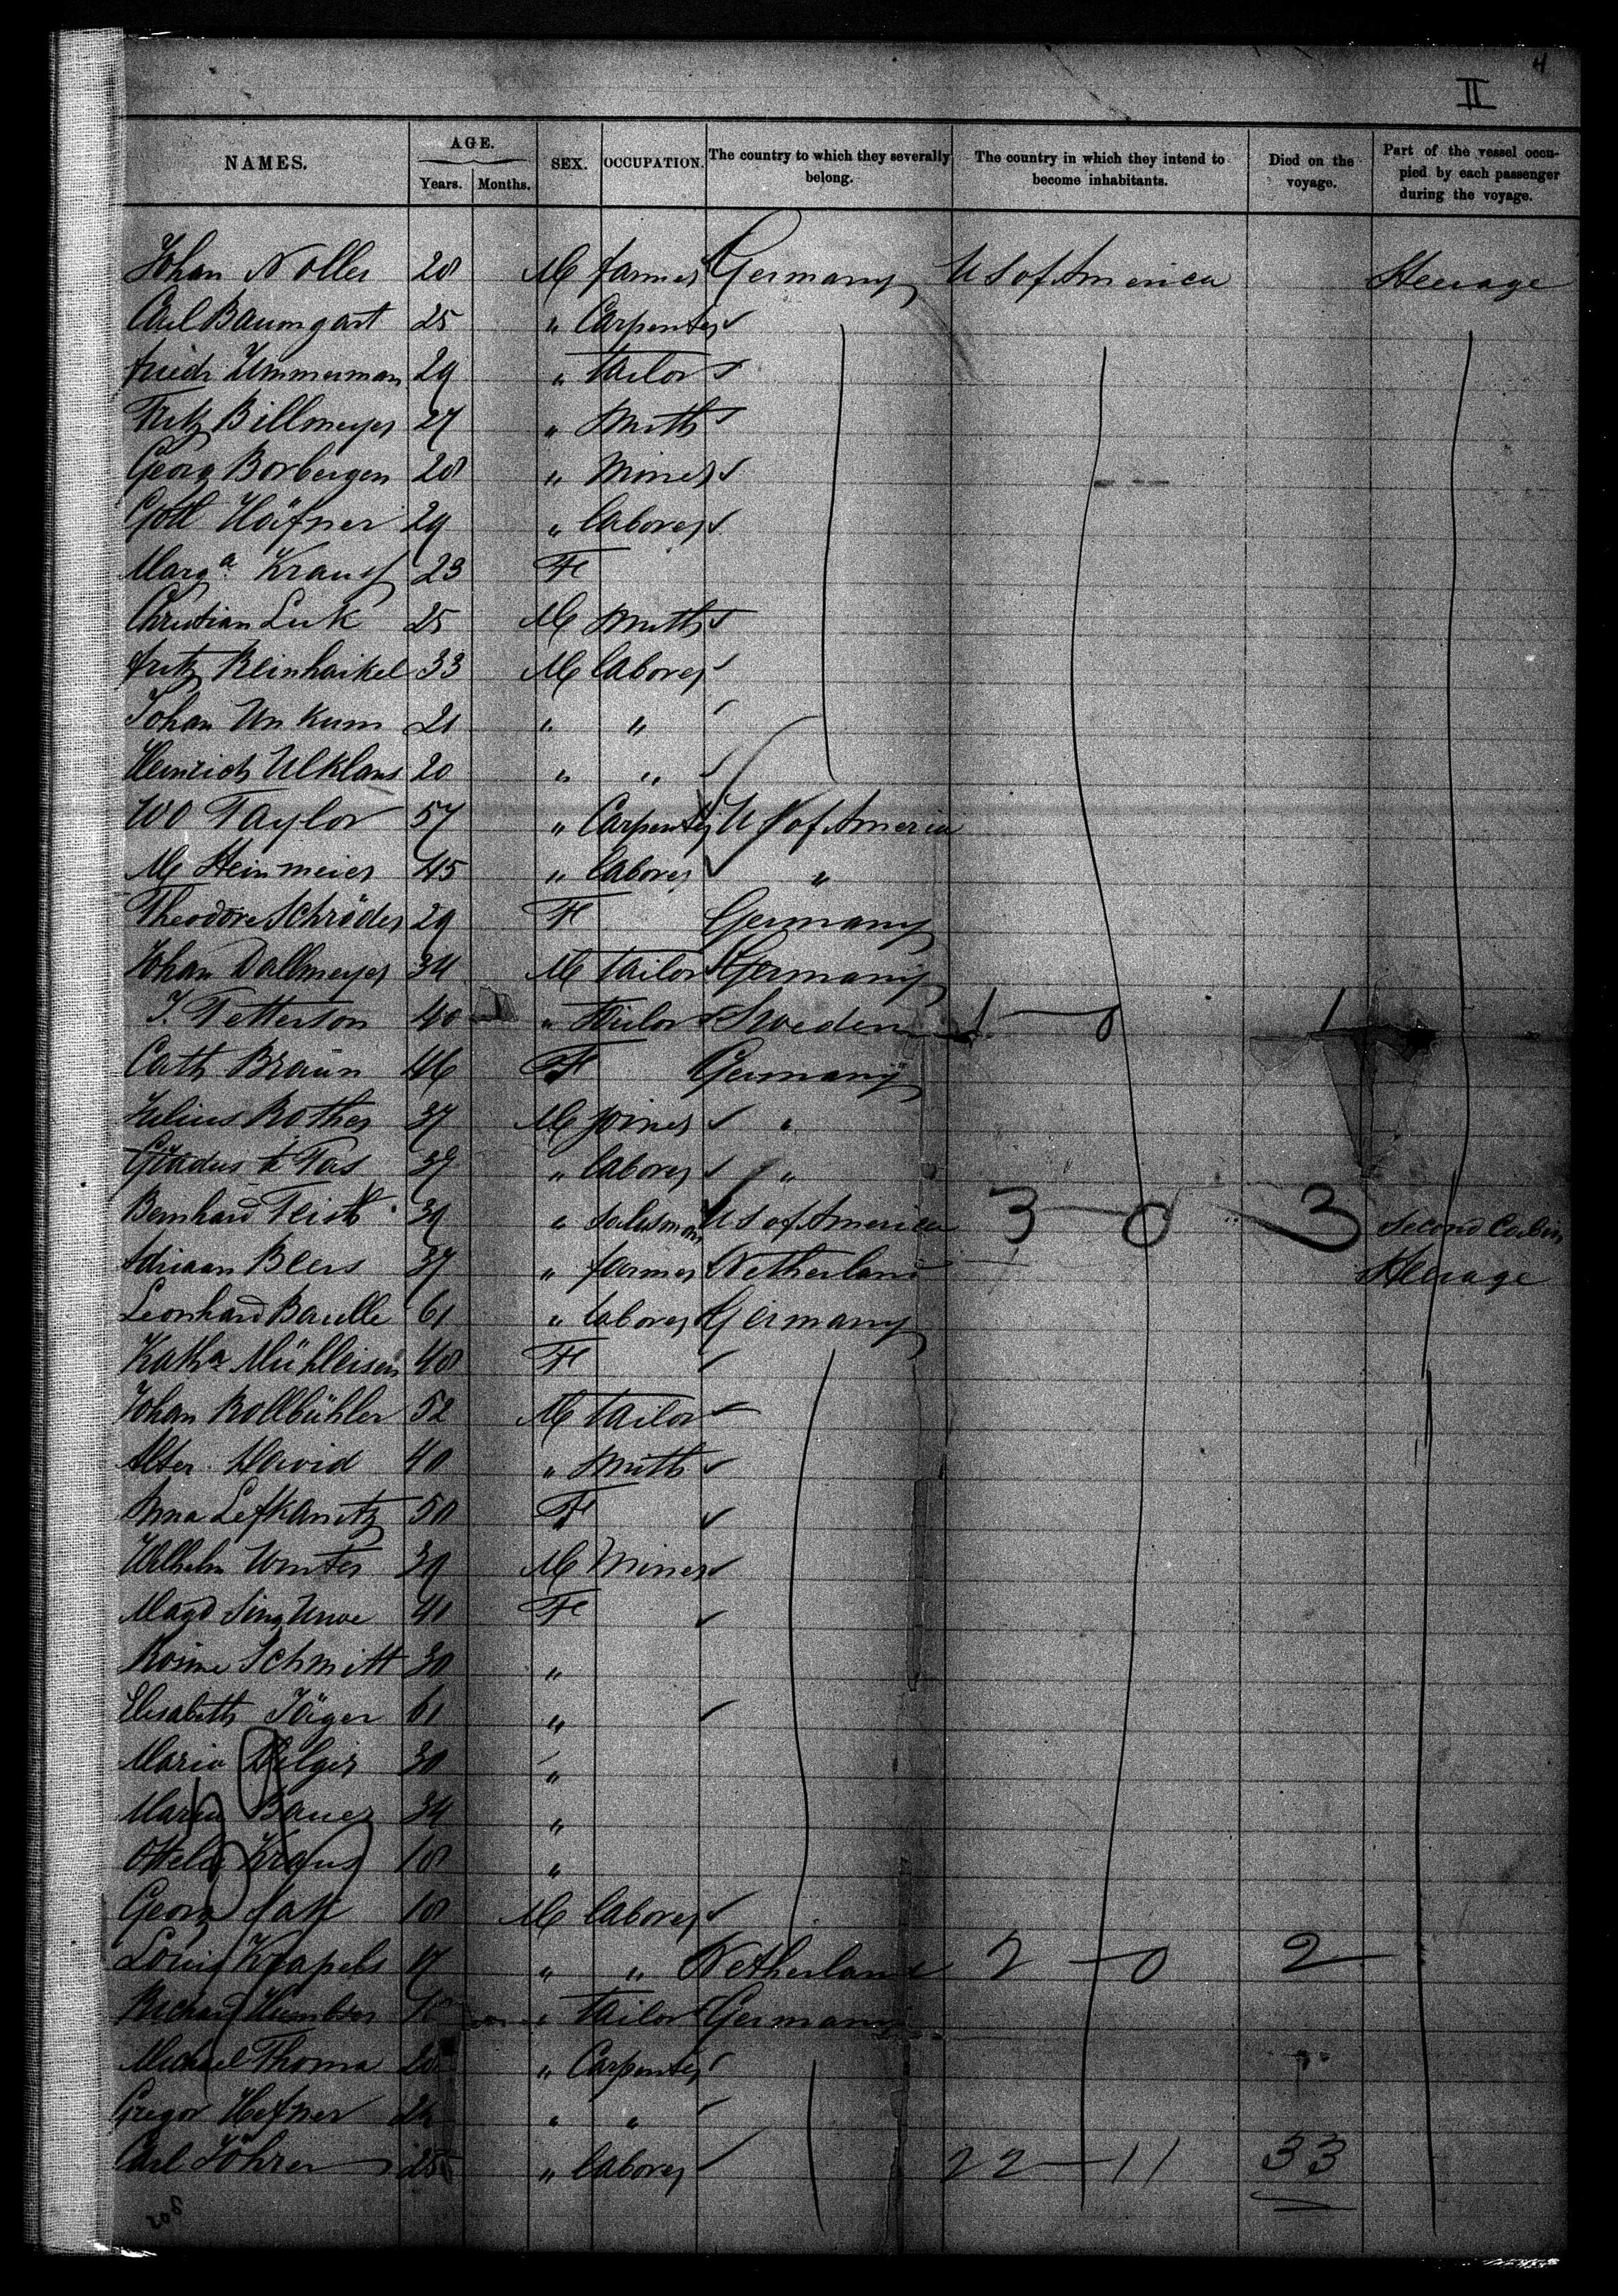 4
II
NAMES. AGE. Years. Months. SEX. OCCUPATION. The country to which they severally belong. The country in which they intend to become inhabitants. Died on the voyage. Part of the vessel occupied by each passenger during the voyage.
Johan Noller 28 M farmer Germany U S of America Steerage
Carl Baumgart 25 " Carpenter
Friedr Zimmerman 29 " Tailor
Fritz Billmeyer 27 " Smith
Georg Borbergen 28 " Miner
Gott Häfner 29 " laborer
Marg a Krauss 23 F
Christian Luk 25 M Smith
Fritz Reinhaikel 33 M laborer
Johan Unkum 21 " "
Heinrich Ulklans 20 " "
Wo Taylor 57 " Carpenter U S of America
M Steinmeier 45 " laborer "
Theodore Schröder 29 F Germany
Johan Dallmeyer 34 M Tailor Germany
J. Petterson 40 " Tailor Sweden 1 — 0 1
Cath Braun 46 F Germany
Julius Rother 37 M joiner "
te Pas 37 " laborer "
Bernhard Feist 39 " salesman U S of America 3 — 0 3 Second Cabin
Adriaan Beers 37 " farmer Netherland Steerage
Leonhard Baulle 61 " laborer Germany
Kath a Mühleisen 48 F
Johan Rollbühler 52 M Tailor
Alter David 40 " Smith
Anna Lefkanitz 50 F
Wilhelm Winter 39 M Miner
Magd 41 F
Rosine Schmitt 30 "
Elisabeth Jäger 61 "
Maria Hilger 30 "
Maria Bauer 34 "
Ottelie Kraus 18 "
Georg 18 M laborer
Louis Krapels 17 " " Netherland 2 — 0 2
Richard " Tailor Germany
Michael Thoma 28 " Carpenter
Gregor Hefner " "
Carl Föhren 25 " laborer 22 — 11 33
208